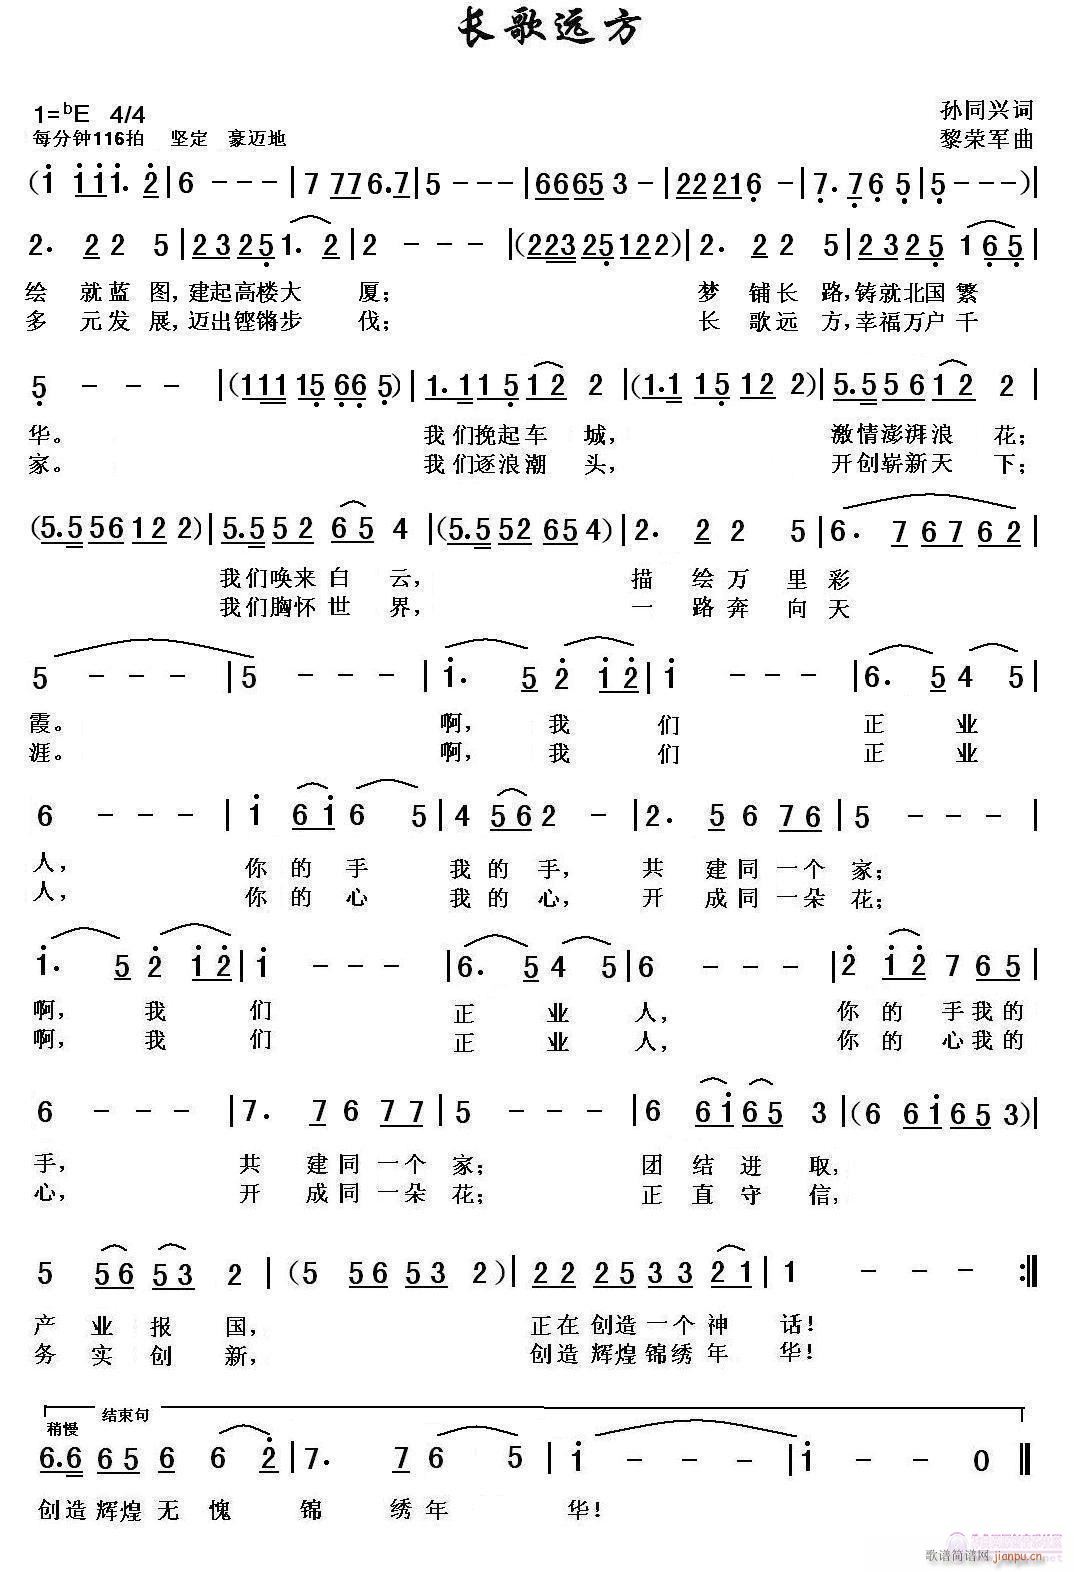 长歌远方
1=ᵇE 4/4
孙同兴词
每分钟116拍 坚定 豪迈地
黎荣军曲
(i iii. 2|6 - - -|7 776.7|5 - - -|(6665 3 -|22216|7. 76 5|5 - - -)|
2. 2 2 5|23251. 2|2 - - -|(22325122)|2. 2 2 5|2325 1 65|
绘 就蓝 图,建起高楼大 厦; 梦 铺长 路,铸就北国繁
多 元发 展,迈出铿锵步 伐; 长 歌远 方,幸福万户千
5 - - -|(111 15 66 5)|1.11 5 12 2|(1.1 15 12 2)|5.556 12 2|
华。 我们挽起车 城, 激情澎湃浪 花;
家。 我们逐浪潮 头, 开创崭新天 下;
(5.556 12 2)|5.552 65 4|(5.552 654)|2. 2 2 5|6. 76762|
我们唤来白 云, 描 绘万 里彩
我们胸怀世 界, 一 路奔 向天
5 - - -|5 - - -|i. 5 2 i2|i - - -|6. 54 5|
霞。 啊, 我 们 正 业
涯。 啊, 我 们 正 业
6 - - -|i 6i6 5|4 56 2 -|2. 5 6 76|5 - - -|
人, 你 的 手 我 的 手, 共 建同 一个 家;
人, 你 的 心 我 的 心, 开 成同 一朵 花;
i. 5 2 i2|i - - -|6. 54 5|6 - - -|2 i2 7 65|
啊, 我 们 正 业 人, 你 的 手我的
啊, 我 们 正 业 人, 你 的 心我的
6 - - -|7. 7 6 77|5 - - -|6 6i65 3|(6 6i65 3)|
手, 共 建同 一个 家; 团 结 进 取,
心, 开 成同 一朵 花; 正 直 守 信,
5 56 53 2|(5 56 53 2)|22 25 33 21|1 - - -:‖
产 业 报 国, 正在 创造 一个 神 话!
务 实 创 新, 创造 辉煌 锦绣 年 华!
结束句
稍慢
6.6 65 6 6 2|7. 76 5|i - - -|i - - 0‖
创造 辉煌 无 愧 锦 绣年 华!
歌谱简谱网 jianpu.cn